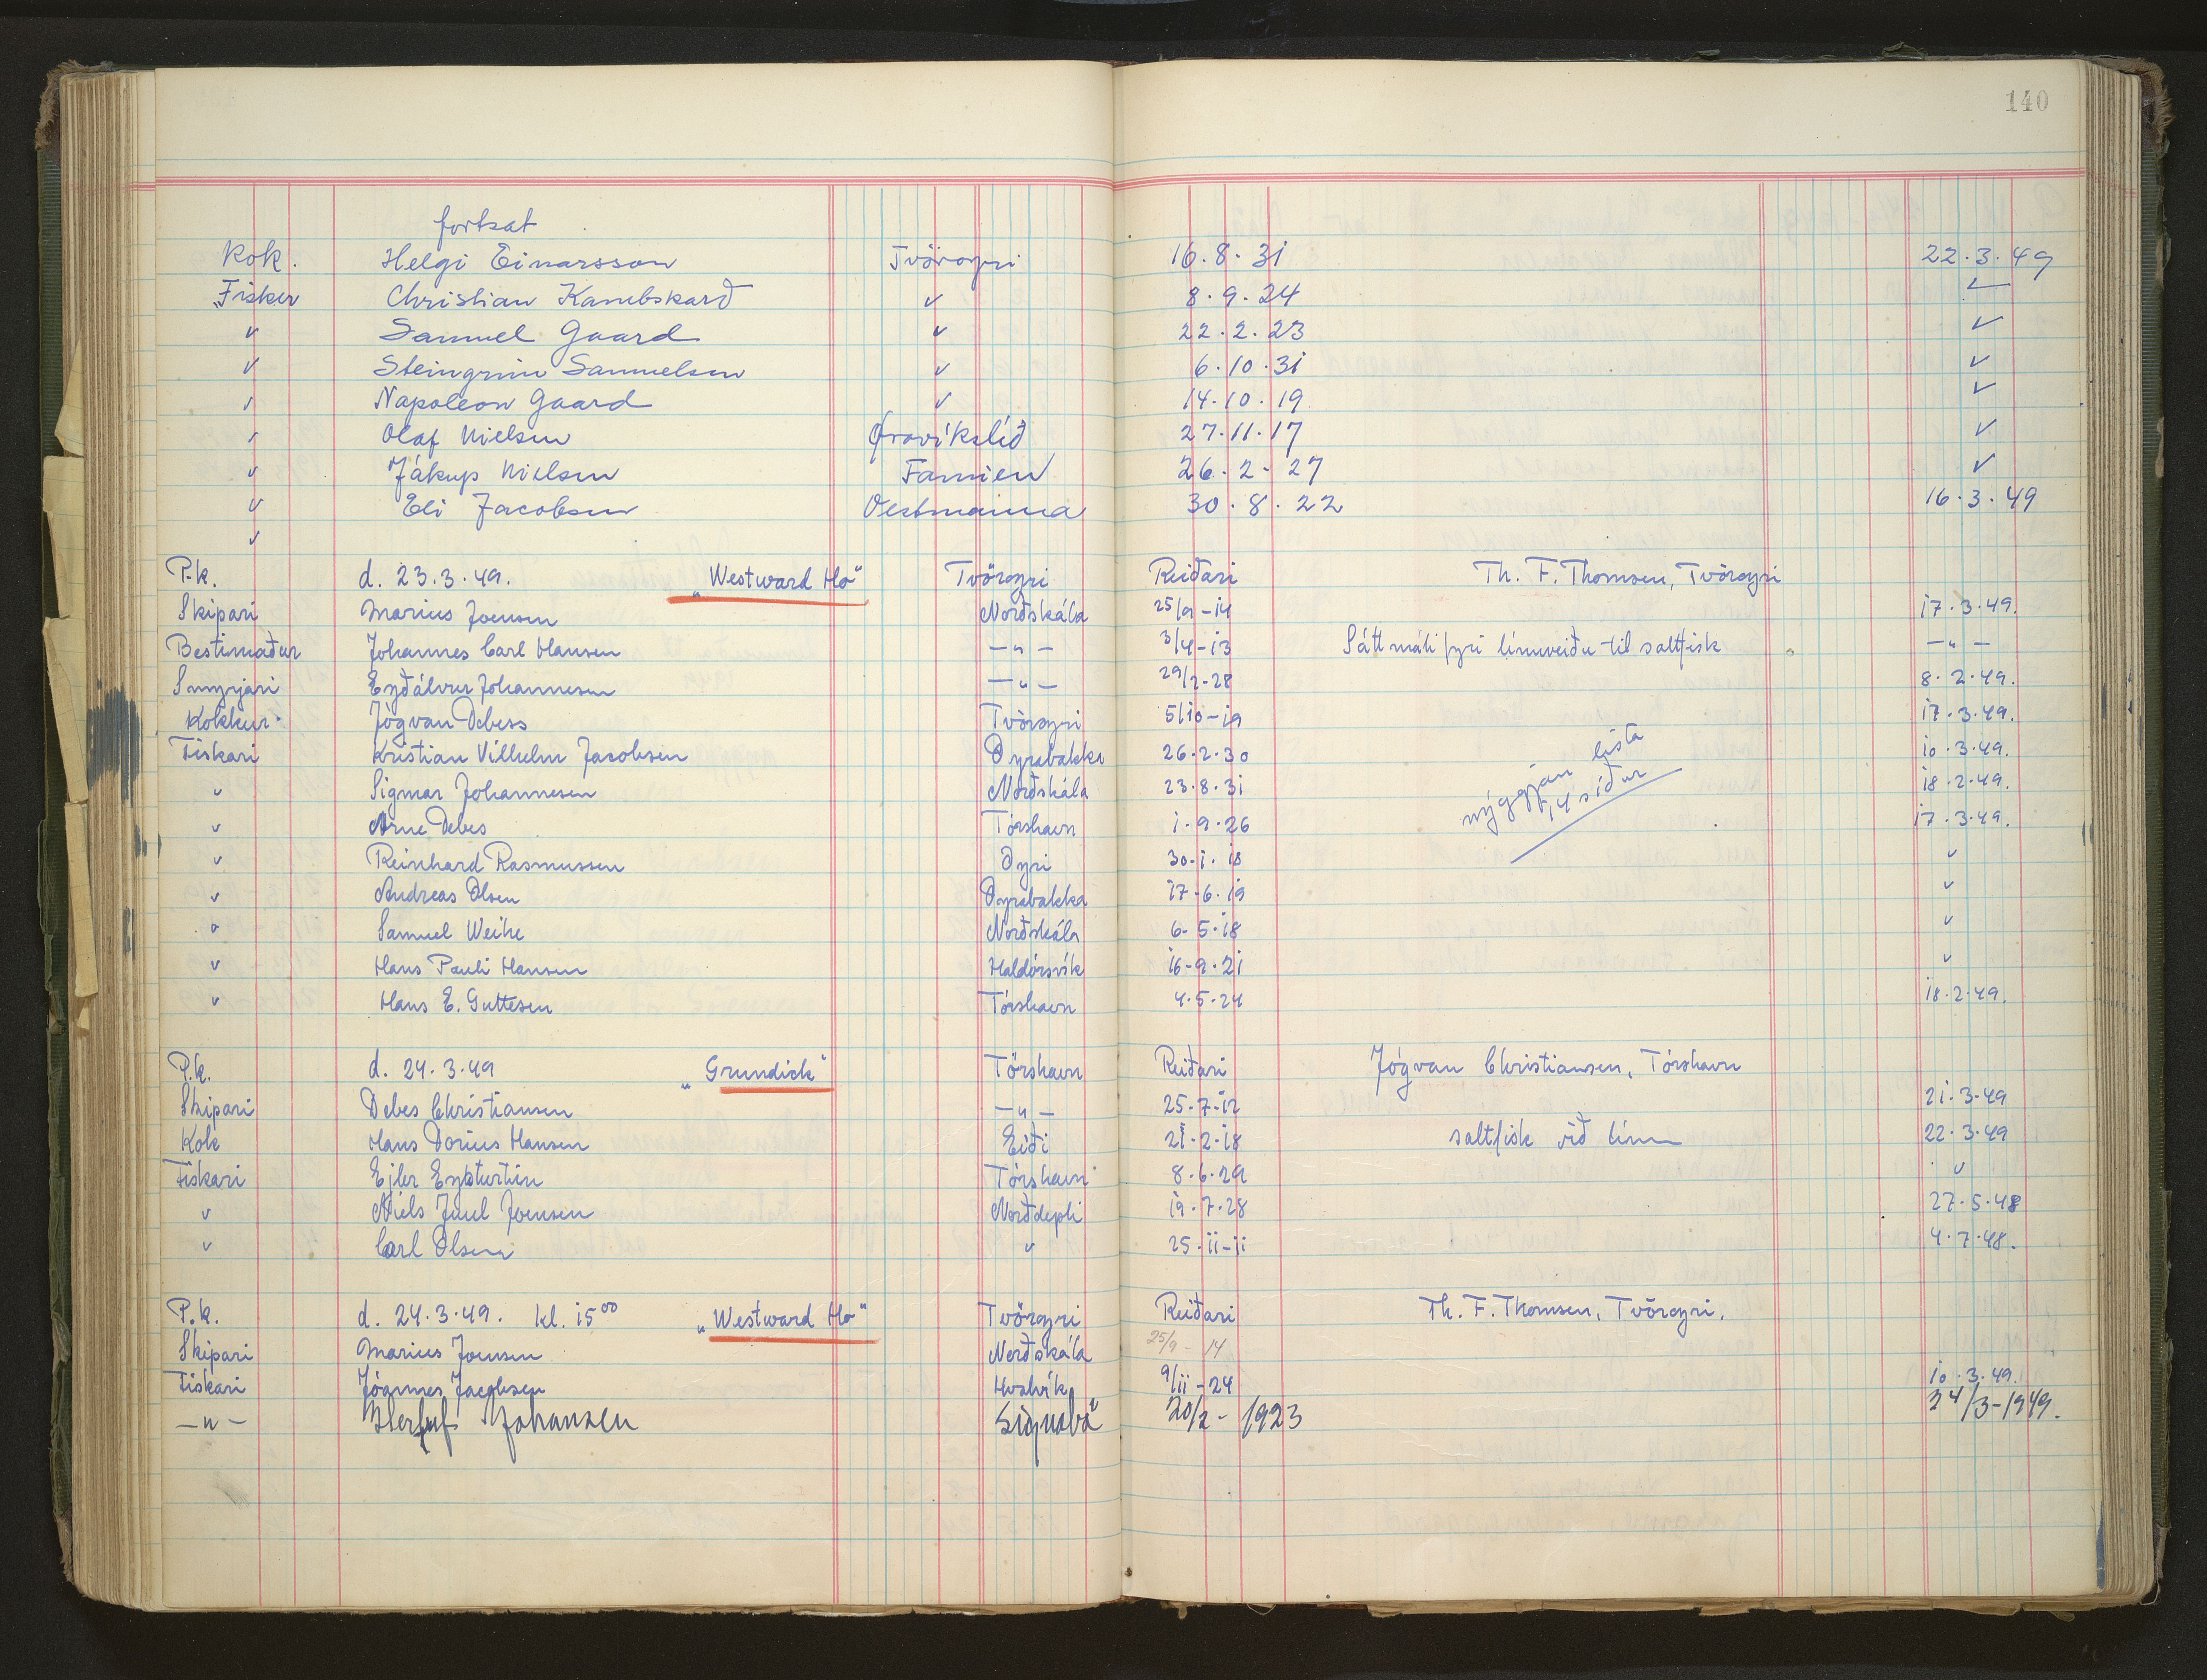 140
fortsat
Kok. Helgi Einarsson Tvöroyri 16.8.31 22.3.49
Fisker Christian Kambskarð v 8.9.24 —
v Samuel Gaard v 22.2.23 v
v Steingrim Samuelsen v 6.10.31 v
v Napoleon Gaard v 14.10.19 v
v Olaf Nielsen Frovíkslið 27.11.17 v
v Jákup Nielsen Famien 26.2-27 v
v Eli Jacobsen Vestmanna 30.8.22 16.3.49
v
P.k. d. 23.3.49. „Westward Ho“ Tvöroyri Reiðari Th. F. Thomsen, Tvöroyri
Skipari Marius Joensen Norðskála 25/9-14 17.3.49.
Bestimaður Johannes Carl Hansen —„— 3/4-13 Sáttmáli fyri línuveiðu til saltfisk —„—
Smyrjari Eyðálvur Johannesen —„— 29/2-28 8.2.49.
Kokkur Jógvan Debess Tvöroyri 5/10-19 17.3.49.
Fiskari Kristian Vilhelm Jacobsen Oyrabakka 26.2.30 10.3.49.
v Sigmar Johannesen Norðskála 23.8.31 nýggjan lista 18.2.49.
v Arne Debes Tórshavn 1.9.26 14 síður 17.3.49.
v Reinhard Rasmussen Oyri 30.1.18 v
v Andreas Olsen Oyrabakka 17-6.19 v
v Samuel Weihe Norðskála 6-5.18 v
v Hans Pauli Hansen Haldórsvík 16-9.21 v
v Hans E. Guttesen Tórshavn 4.5.24 18.2.49.
P.k. d. 24.3.49 „Grundick“ Tórshavn Reiðari Jógvan Christiansen, Tórshavn
Skipari Debes Christiansen —„— 25.7-12 21.3-49
Kok Hans Dorius Hansen Eiði 21.2.18 saltfisk við línu 22.3.49
Fiskari Ejler Eysturtún Tórshavn 8.6.29 v
v Niels Juul Joensen Norðdepli 19.7.28 27.5.48
v Carl Olsen v 25.11-11 4.7.48.
P.k. d. 24.3.49. kl. 15 00 „Westward Ho“ Tvöroyri Reiðari Th. F. Thomsen, Tvöroyri.
Skipari Marius Joensen Norðskála 25/9-14
Fiskari Jógannes Jacobsen Hvalvík 9/11-24 10.3.49.
—„— Johansen Signabø 20/2-1923 24/3-1949.